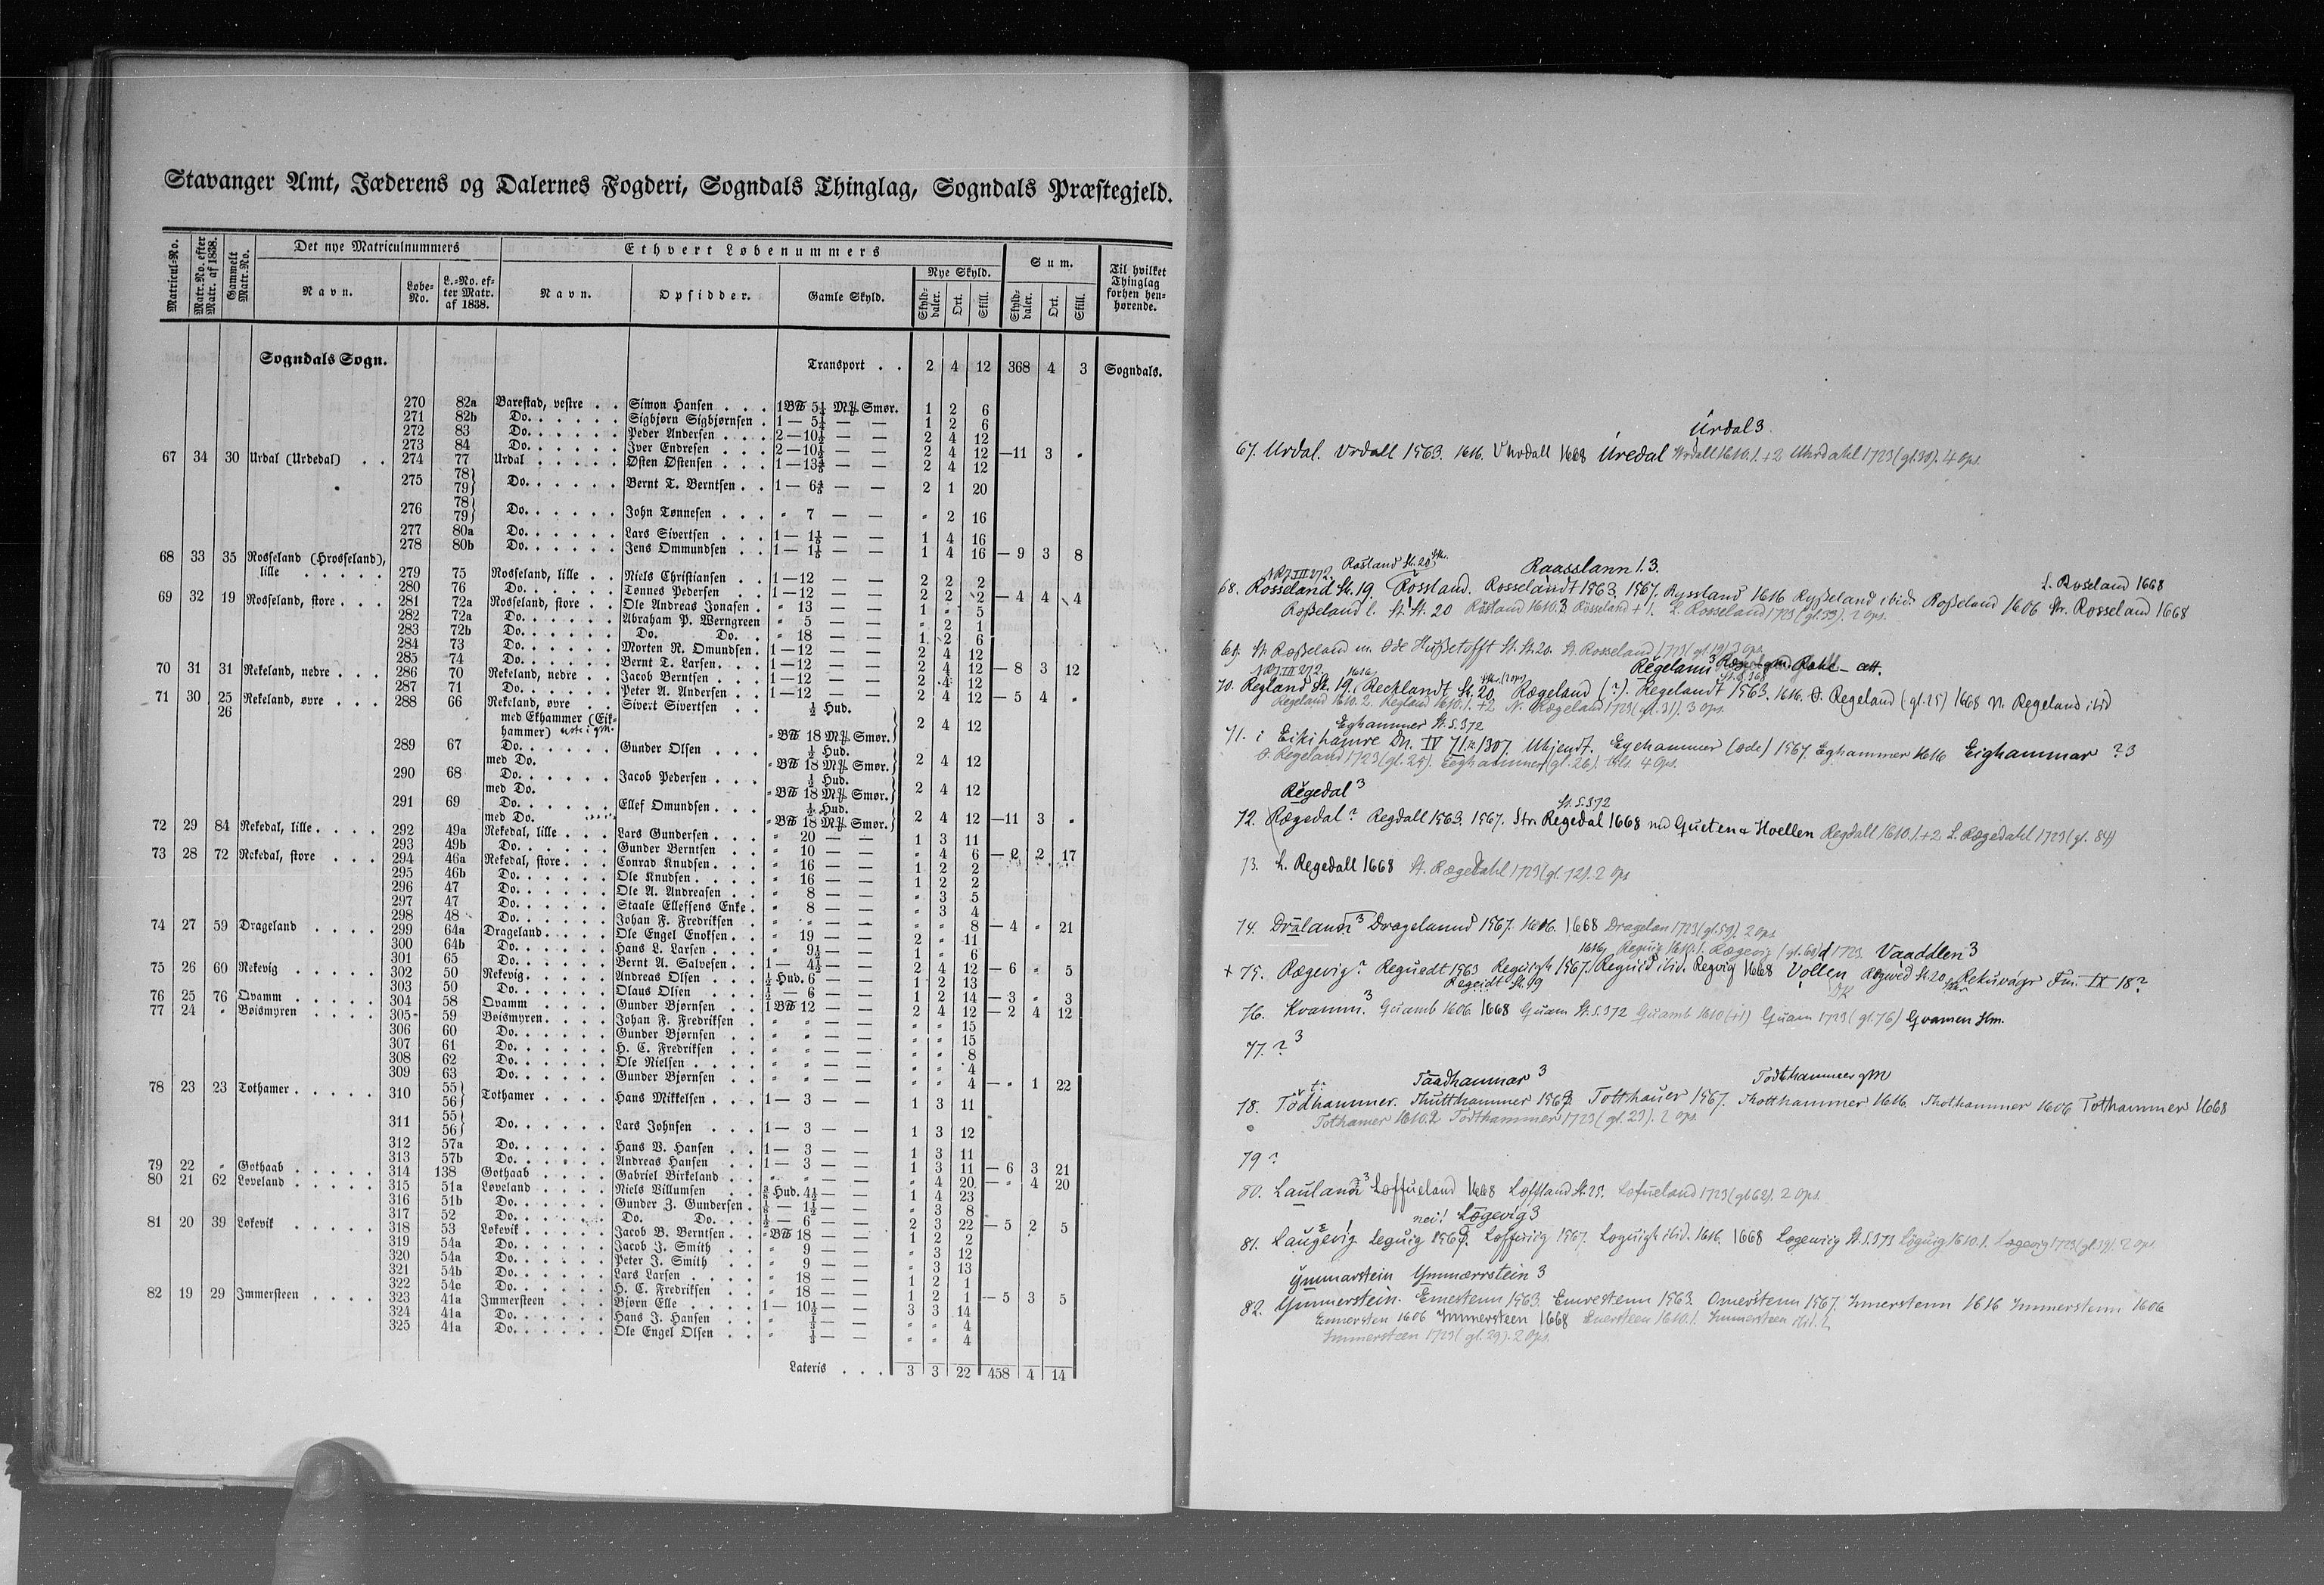 Stavanger Amt, Jæderens og Dalernes Fogderi, Sogndals Thinglag, Sogndals Præstegjeld.
Matricul-No. Matr.-No. efter Matr. af 1838. Gammelt Matr.-No. Det nye Matriculnummers Ethvert Løbenummers Sum. Til hvilket Thinglag forhen henhørende.
Navn. Løbe-No. L.-No. efter Matr. af 1838. Navn. Opsidder. Gamle Skyld. Nye Skyld.
Skylddaler. Ort. Skill. Skylddaler. Ort. Skill.
Sogndals Sogn. Transport . . 2 4 12 368 4 3 Sogndals.
270 82a Barestad, vestre . . Simon Hansen . . . 1 5¼ Smør. 1 2 6
271 82b Do. Sigbjørn Sigbjørnsen . 1 — 5¼ — — 1 2 6
272 83 Do. Peder Andersen . . . 2 — 10½ — — 2 4 12
273 84 Do. Iver Endresen . . . 2 — 10½ — — 2 4 12 — 11 3 "
67 34 30 Urdal (Urdedal) . . 274 77 Urdal Østen Østensen . . . 1 — 13⅘ — — 2 4 12
275 78 79} Do. Bernt T. Berntsen . . 1 — 6⅘ — — 2 1 20
276 78 79} Do. John Tønnesen . . . " 7 — — " 2 16
277 80a Do. Lars Sivertsen . . . 1 — 1⅕ — — 1 4 16
278 80b Do. Jens Ommundsen . . 1 — 1⅕ — — 1 4 16 — 9 3 8
68 33 35 Rosseland (Hrosseland), lille 279 75 Rosseland, lille . . Niels Christiansen . . 1 — 12 — — 2 2 2
280 76 Do. Tønnes Pedersen . . 1 — 12 — — 2 2 2 — 4 4 4
69 32 19 Rosseland, store . . . 281 72a Rosseland, store . . Ole Andreas Jonasen . " 13 — — 1 " 5
282 72a Do. Abraham P. Werngreen " 5 — — " 2 1
283 72b Do. Do. Do. . " 18 — — 1 2 6
284 73 Do. Morten R. Omundsen . 1 — 12 — — 2 4 12
285 74 Do. Bernt T. Larsen . . . 1 — 12 — — 2 4 12 — 8 3 12
70 31 31 Rekeland, nedre . . . 286 70 Rekeland, nedre . . Jacob Berntsen . . . 1 — 12 — — 2 4 12
287 71 Do. Peter A. Andersen . . 1 — 12 — — 2 4 12 — 5 4 "
71 30 25 26 Rekeland, øvre . . . 288 66 Rekeland, øvre . . med Ekhammer (Eikhammer) Sivert Sivertsen . . ½ Hud. " 18 Smør.} 2 4 12
289 67 Do. med Do. Gunder Olsen . . . ½ Hud. " 18 Smør.} 2 4 12
290 68 Do. med Do. Jacob Pedersen . . . ½ Hud. " 18 Smør.} 2 4 12
291 69 Do. med Do. Ellef Omundsen . . . ½ Hud. " 18 Smør.} 2 4 12 — 11 3 "
72 29 84 Rekedal, lille . . . . 292 49a Rekedal, lille . . . Lars Gundersen . . . " 20 — — 1 3 11
293 49b Do. Gunder Berntsen . . " 10 — — " 4 6 — 2 2 17
73 28 72 Rekedal, store . . . 294 46a Rekedal, store . . . Conrad Knudsen . . . " 16 — — 1 2 2
295 46b Do. Ole Knudsen . . . . " 16 — — 1 2 2
296 47 Do. Ole A. Andreasen . . " 8 — — " 3 5
297 47 Do. Staale Ellefsens Enke . " 8 — — " 3 4
298 48 Do. Johan F. Fredriksen . " " — — " " 8 — 4 " 21
74 27 59 Drageland . . . . 299 64a Drageland . . . . Ole Engel Enoksen . . " 19 — — 2 " 11
300 64b Do. Hans L. Larsen . . . " 9½ — — 1 " 6
301 65 Do. Bernt A. Salvesen . . 1 — 4½ — — 2 4 12 — 6 " 5
75 26 60 Rekevig . . . . . 302 50 Rekevig . . . . . Andreas Olsen . . . ½ Hud. 6 — — 1 2 13
303 50 Do. Olaus Olsen . . . ½ — 6 — — 1 2 14 — 3 " 3
76 25 76 Qvamm . . . . . 304 58 Qvamm . . . . Gunder Bjørnsen . . 1 12 — — 2 4 12 — 2 4 12
77 24 " Bøismyren . . . . 305 59 Bøismyren . . . . Johan F. Fredriksen . " " — — " " 15
306 60 Do. Gunder Bjørnsen . . " " — — " " 15
307 61 Do. H. C. Fredriksen . . " " — — " " 8
308 62 Do. Ole Nielsen . . . . " " — — " " 4
309 63 Do. Gunder Bjørnsen . . " " — — " " 4 — " 1 22
78 23 23 Tothamer . . . . . 310 55 56} Tothamer . . . . Hans Mikkelsen . . . 1 — 3 — — 1 3 11
311 55 56} Do. Lars Johnsen . . . 1 — 3 — — 1 3 12
312 57a Do. Hans V. Hansen . . 1 — 3 — — 1 3 11
313 57b Do. Andreas Hansen . . 1 — 3 — — 1 3 11 — 6 3 21
79 22 " Gothaab . . . . . 314 138 Gothaab . . . . . Gabriel Birkeland . . " " — — " 4 20 — " 4 20
80 21 62 Løveland . . . . . 315 51a Løveland . . . . Niels Villumsen . . ⅜ Hud. 4½ — — 1 4 23
316 51b Do. Gunder J. Gundersen . ⅛ — 1½ — — " 3 8
317 52 Do. Do. Do. . . ½ — 6 — — 2 3 22 — 5 2 5
81 20 39 Løkevik . . . . . 318 53 Løkevik . . . . . Jacob B. Berntsen . . " 18 — — 1 2 2
319 54a Do. Jacob J. Smith . . " 9 — — " 3 12
320 54a Do. Peter J. Smith . . " 9 — — " 3 13
321 54b Do. Lars Larsen . . . . " 18 — — 1 2 1
322 54c Do. H. C. Fredriksen . . " 18 — — 1 2 1 — 5 3 5
82 19 29 Immersteen . . . . 323 41a Immersteen . . . Bjørn Elle . . . . 1 — 10½ — — 3 3 14
324 41a Do. Hans J. Hansen . . " ⅓ — — " " 4
325 41a Do. Ole Engel Olsen . . " ⅓ — — " " 4
Lateris . . . 3 3 22 458 4 14
Úrdal 3.
67. Urdal. Vrdall 1563. 1616. Vhrdall 1668 Úredal Urdall 1610.1.+2 Uhrdahl 1723 (gl. 30). 4 Ops.
Raasslann 1.3.
L. Rosseland 1668
68. Rosseland St. 19. Rossland. Rosselandt 1563. 1567. Ryssland 1616 Rysseland ibid. Rosseland 1606 Str. Rosseland 1668
Rosseland l. St. St. 20 Rosland 1610.2 Rosseland + 1. L. Rosseland 1723 (gl. 35). 2 Ops.
69. St. Rosseland m. Øde Hussetofft St. St. 20. St. Rosseland 1723 (gl. 19) 3 Ops.
70. Regland St. 19. Rechlandt St. 20. Rægeland (?). Regelandt 1563. 1616. Ø. Regeland (gl. 25) 1668 N. Regeland ibid
Regeland 1610.2. Regland 1610.1.+2 N. Rægeland 1723 (gl. 31). 3 Ops.
Eghammer St. S. 372
71. i Eikihamre Dn. IV 71 1307. Uhjemt. Egehammer (øde) 1567. Eghammer 1616 Eighammar ? 3
Ø. Regeland 1723 (gl. 25). Eeghammer (gl. 26). 4 Ops.
Rēgedal 3
St. S. 372
72. Rægedal ? Regdall 1563. 1567. Str. Regedal 1668 med Gueten & Hoellen Regdall 1610.1.+2 L. Rægedahl 1723 (gl. 84)
73. L. Regedall 1668 St. Rægedahl 1723 (gl. 72). 2 Ops
74. Drālann 3 Dragelannd 1567. 1606. 1668 Dragelan 1723 (gl. 59). 2 Ops
1616 Reguig 1610.1. Rægevig (gl. 60) 1723. Vaaddlen 3
+ 75. Rægevig ? Reguadt 1563 Reguigh 1567. Reguid ibid. Regvig 1668 Vollen Regwed St. 20. Rekuvágr Fm. IX 18 ?
Regeidt St. 19
76. Kvamm. 3 Guamb 1606. 1668 Guam St. S. 372 Guamb 1610 (+1) Guam 1723 (gl. 76) Gvamen Hm.
77. ? 3
Taadhammar 3 Todthammer
78. Tødhammer. Thutthammer 1563. Totthauer 1567. Thotthammer 1616. Thothammer 1606 Tothammer 1668
Tothamer 1610.2 Todthammer 1723 (gl. 23). 2 Ops.
79 ?
80. Laulann 3 Loffueland 1668 Loffland St. 25. Lofueland 1723 (gl. 62). 2 Ops.
nei! Lōgevig 3
81. Laugevig. Leguig 1563. Loffwiig 1567. Loguigh ibid. 1616. 1668 Løgewiig St. S. 371 Löguig 1610.1. Løgevig 1723 (gl. 39). 2 Ops.
Ymmarstein Ymmærrstein 3
82. Ymmerstein. Emestenn 1563. Emrestenn 1563. Omerstenn 1567. Immerstenn 1616 Immerstenn 1606
Emmersten 1606 Immersteen 1668 Emersteen 1610.1. Immersteen ibid. 2
Immersteen 1723 (gl. 29). 2 Ops.